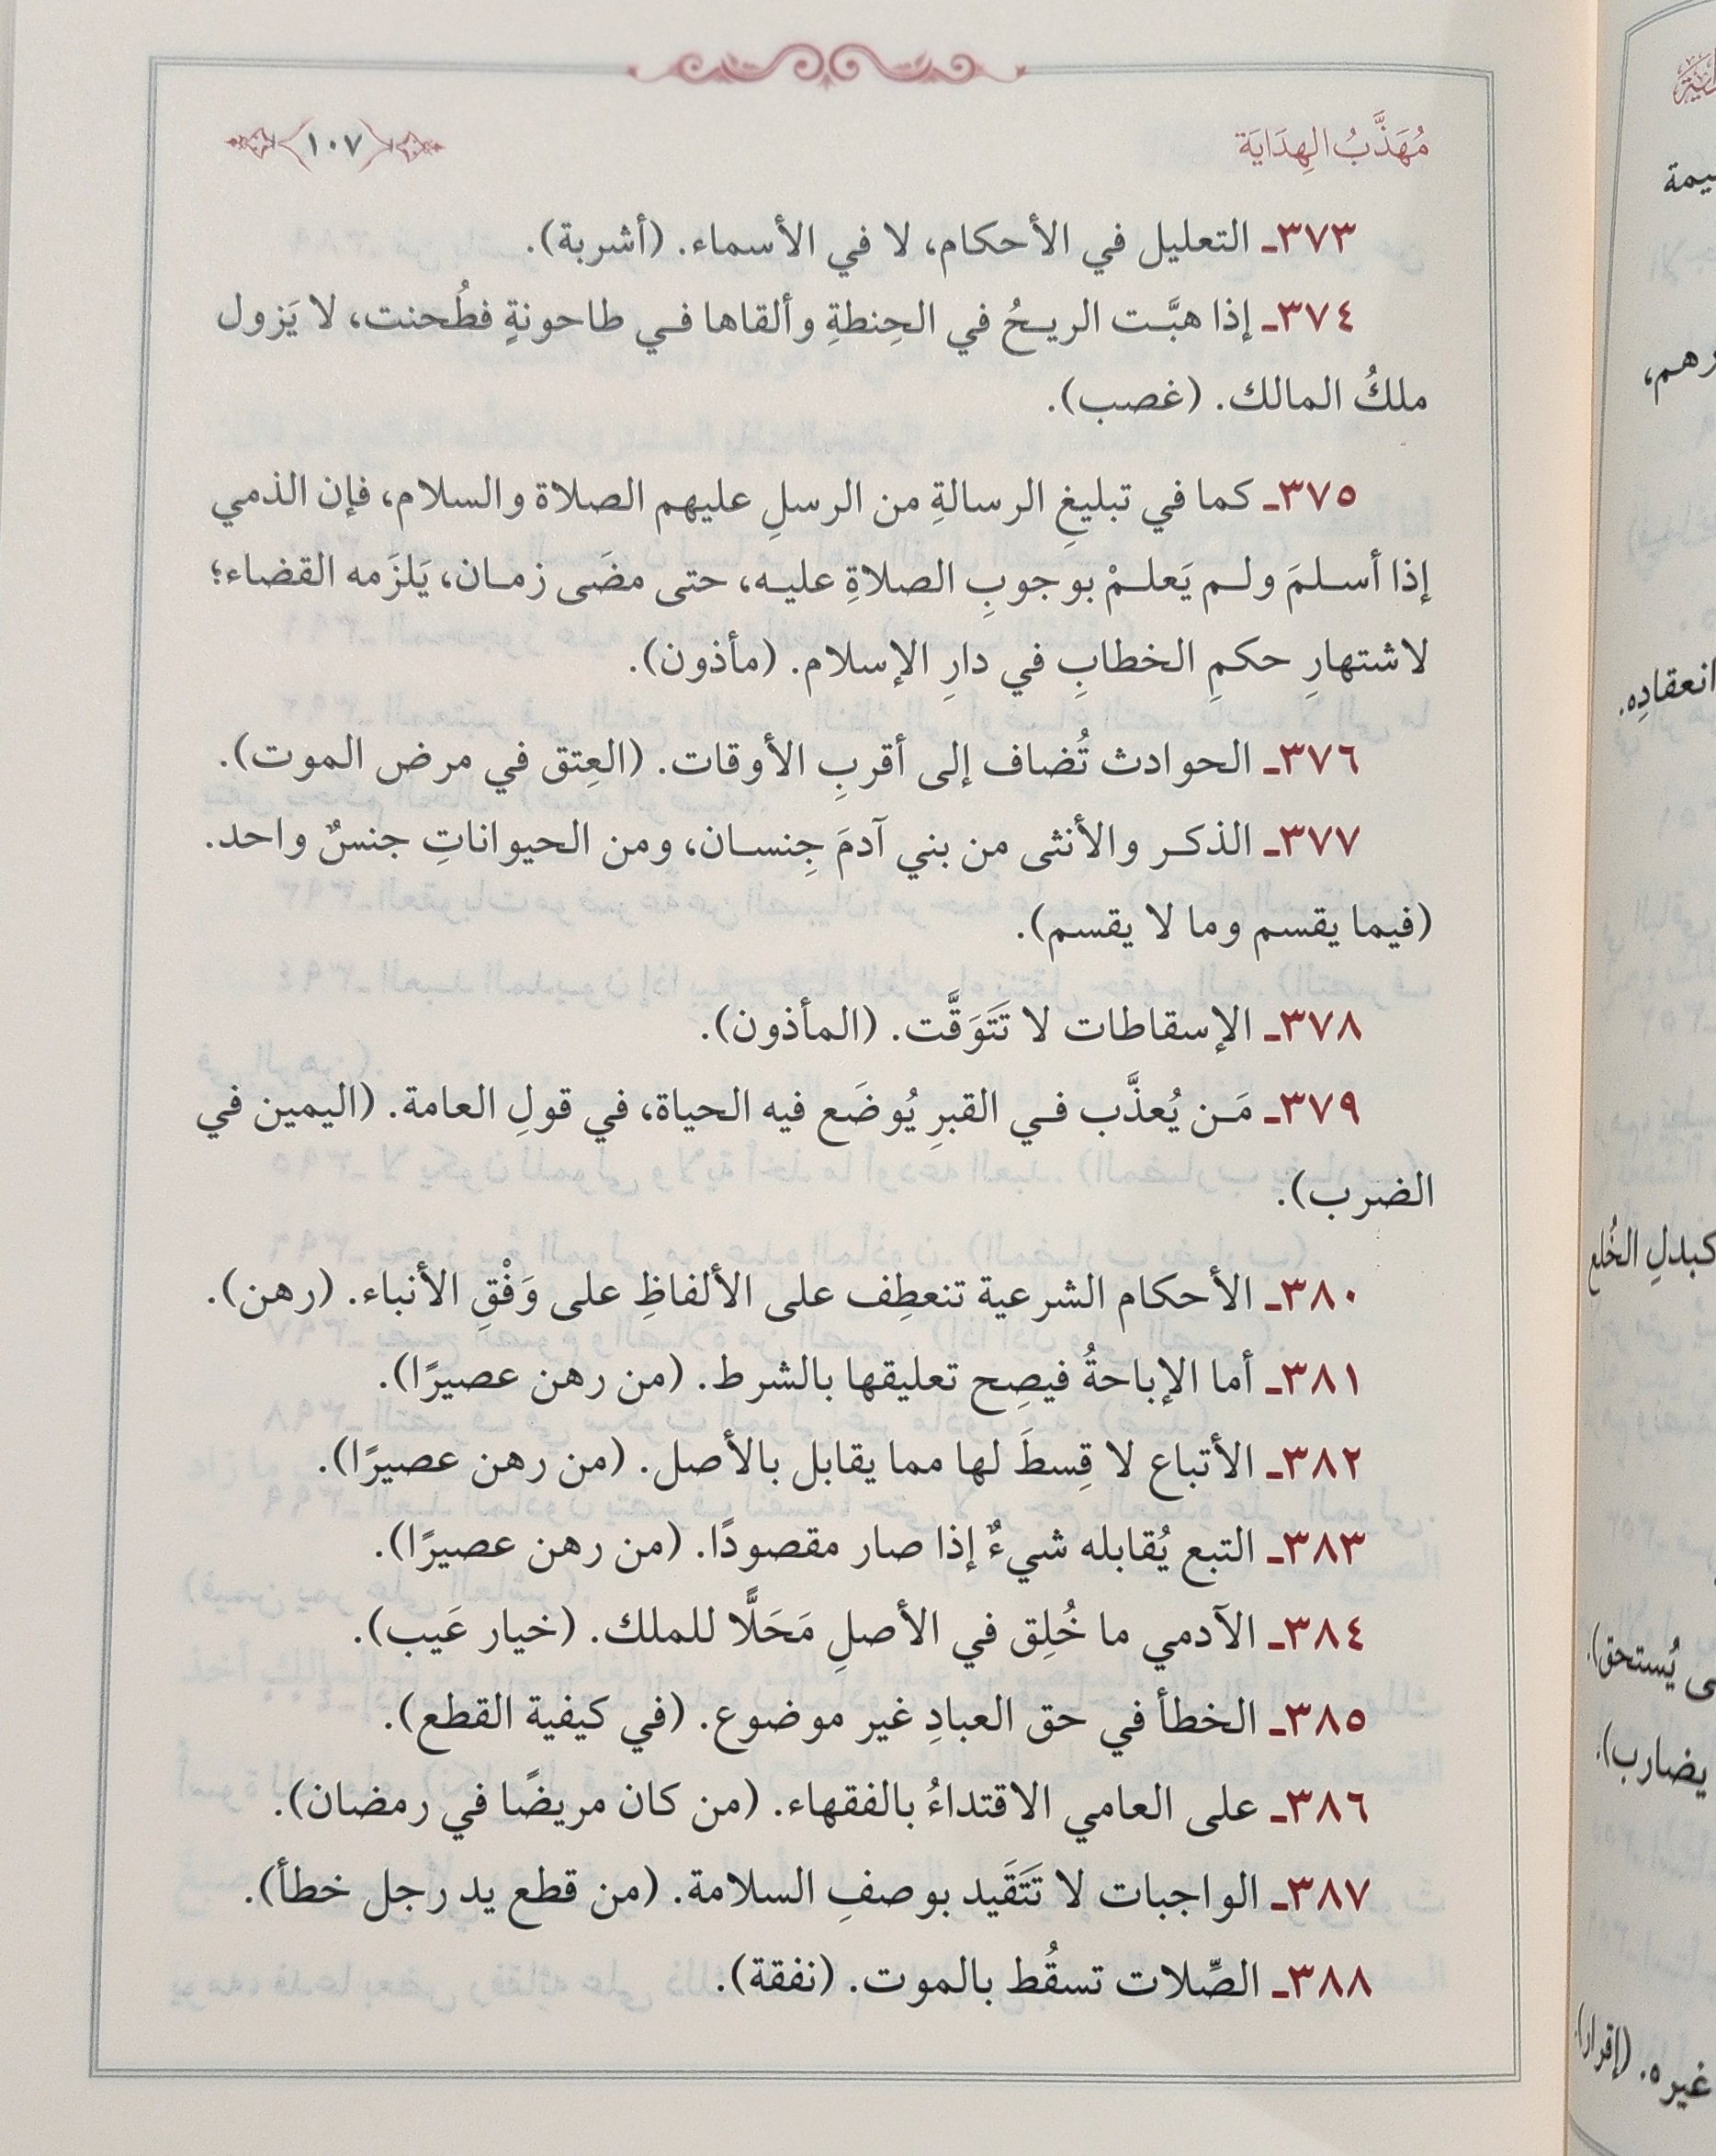 مُهَذَّبُ الهِدَايَة
١٠٧
٣٧٣ـ التعليل في الأحكام، لا في الأسماء. (أشربة).
٣٧٤ـ إذا هبَّت الريحُ في الحِنطةِ وألقاها في طاحونةٍ فطُحنت، لا يَزول
ملكُ المالك. (غصب).
٣٧٥ـ كما في تبليغِ الرسالةِ من الرسلِ عليهم الصلاة والسلام، فإن الذمي
إذا أسلمَ ولم يَعلمْ بوجوبِ الصلاةِ عليه، حتى مضَى زمان، يَلزَمه القضاء؛
لاشتهارِ حكمِ الخطابِ في دارِ الإسلام. (مأذون).
٣٧٦ـ الحوادث تُضاف إلى أقربِ الأوقات. (العِتق في مرض الموت).
٣٧٧ـ الذكر والأنثى من بني آدمَ جِنسان، ومن الحيواناتِ جنسٌ واحد.
(فيما يقسم وما لا يقسم).
٣٧٨ـ الإسقاطات لا تَتَوَقَّت. (المأذون).
٣٧٩ـ مَن يُعذَّب في القبرِ يُوضَع فيه الحياة، في قولِ العامة. (اليمين في
الضرب).
٣٨٠ـ الأحكام الشرعية تنعطِف على الألفاظِ على وَفْقِ الأنباء. (رهن).
٣٨١ـ أما الإباحةُ فيصِح تعليقها بالشرط. (من رهن عصيرًا).
٣٨٢ـ الأتباع لا قِسطَ لها مما يقابل بالأصل. (من رهن عصيرًا).
٣٨٣ـ التبع يُقابله شيءٌ إذا صار مقصودًا. (من رهن عصيرًا).
٣٨٤ـ الآدمي ما خُلِق في الأصلِ مَحَلًّا للملك. (خيار عَيب).
٣٨٥ـ الخطأ في حق العبادِ غير موضوع. (في كيفية القطع).
٣٨٦ـ على العامي الاقتداءُ بالفقهاء. (من كان مريضًا في رمضان).
٣٨٧ـ الواجبات لا تَتَقَيد بوصفِ السلامة. (من قطع يد رجل خطأ).
٣٨٨ـ الصِّلات تسقُط بالموت. (نفقة).
رهم،
انعقادِه.
كبدلِ الخُلع
يُستحق).
يضارب).
غيره. (إقرار).